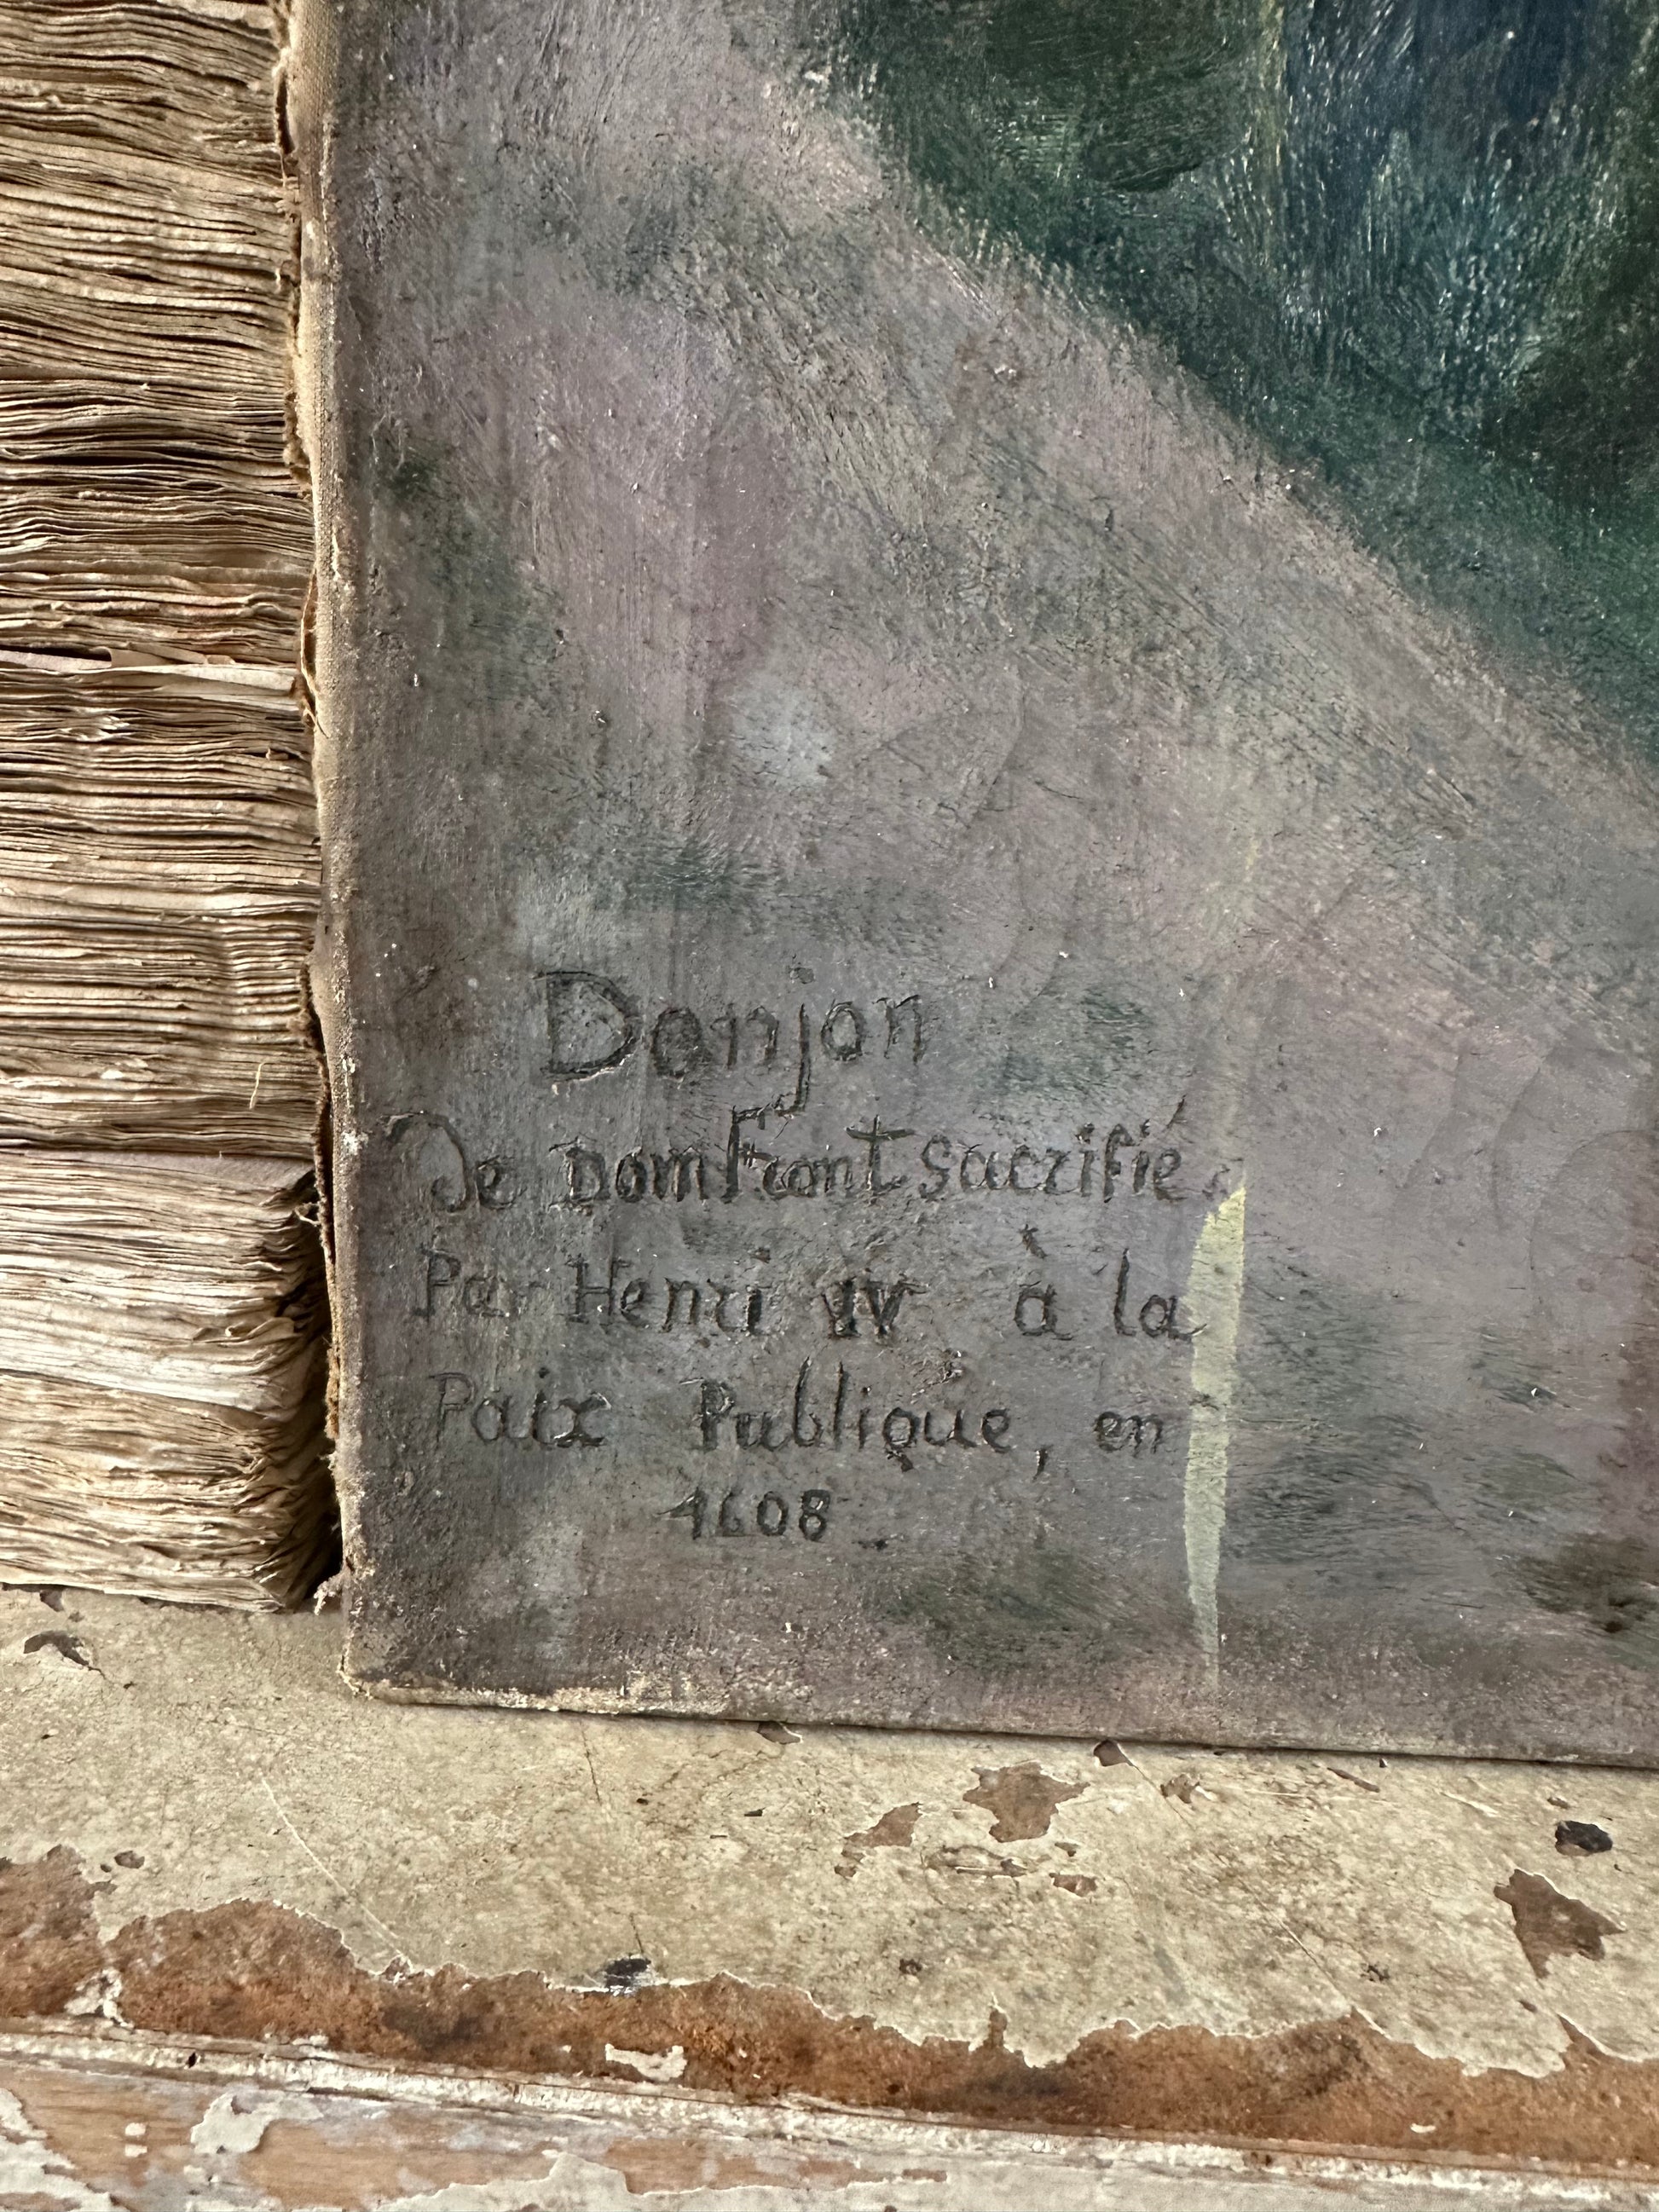 Donjon
De DomFront sacrifié
Par Henri IV à la
Paix Publique, en
1608